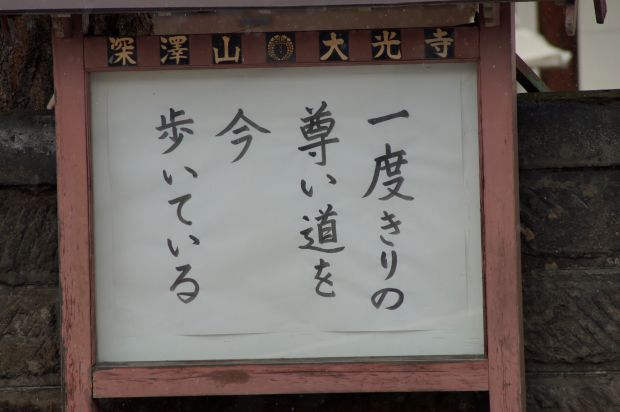 深澤山 大光寺
一度きりの
尊い道を
今
歩いている